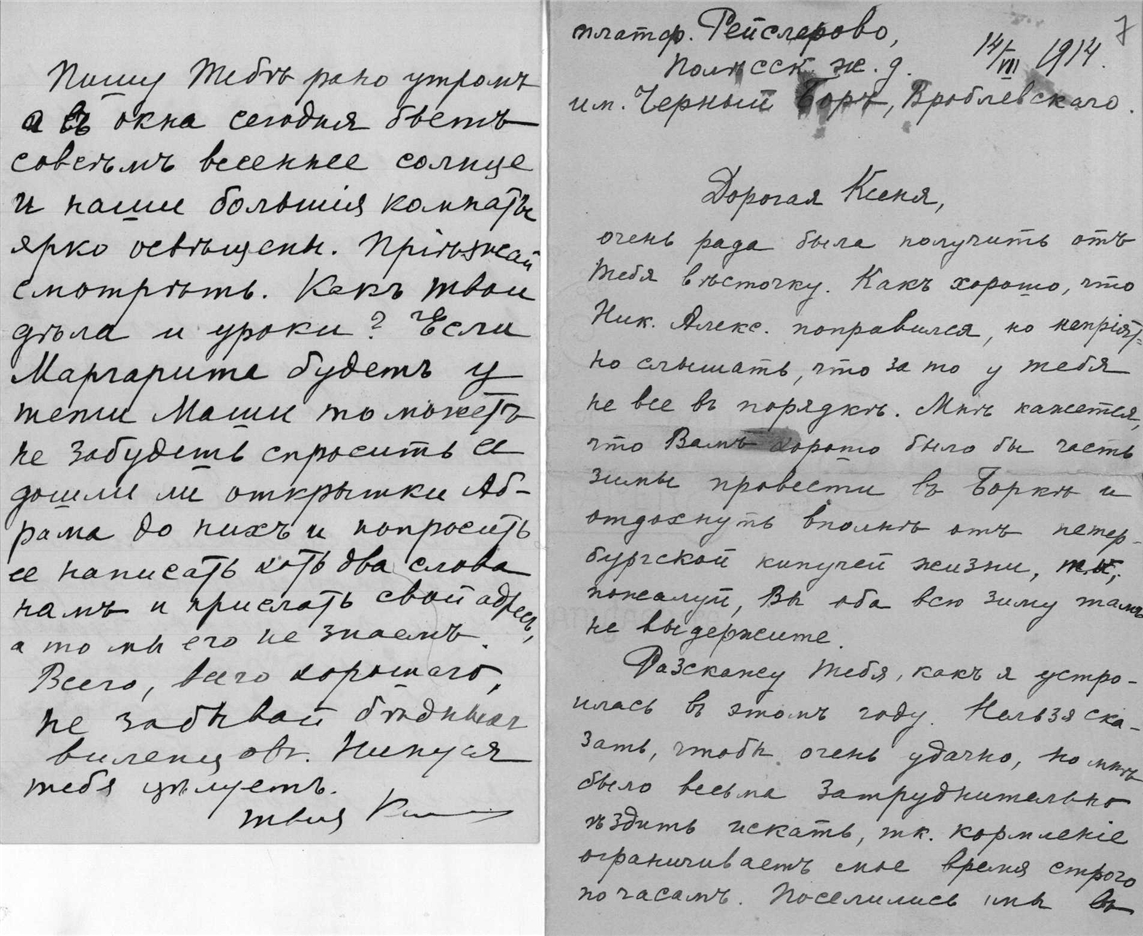 Пишу Тебѣ рано утромъ
и въ окна сегодня бьетъ
совсѣмъ весеннее солнце
и наши большія комнаты
ярко освѣщены. Пріѣзжай
смотрѣть. Какъ твои
дѣла и уроки? Если
Маргарита будетъ у
тети Маши то можетъ
не забудетъ спросить ее
дошли ли открытки Аб-
рама до нихъ и попросить
ее написать хоть два слова
намъ и прислать свой адресъ,
а то мы его не знаемъ.
Всего, всего хорошаго,
не забывай бѣдныхъ
виленцовъ. Нинуся
тебя цѣлуетъ.
твоя
7
платф. Рейслерово, 14/VII 1914.
Полѣсск. ж. д.
им. Черный Боръ, Вроблевскаго.
Дорогая Ксеня,
очень рада была получить отъ
Тебя вѣсточку. Какъ хорошо, что
Ник. Алекс. поправился, но непріят-
но слышать, что за то у тебя
не все въ порядкѣ. Мнѣ кажется,
что Вамъ хорошо было бы часть
зимы провести въ Боркѣ и
отдохнуть вполнѣ отъ петер-
бургской кипучей жизни,
пожалуй, Вы оба всю зиму тамъ
не выдержите.
Разскажу Тебя, какъ я устро-
илась въ этомъ году. Нельзя ска-
зать, чтобы очень удачно, но мнѣ
было весьма затруднительно
ѣздить искать, т.к. кормленіе
ограничиваетъ мое время строго
по часамъ. Поселились мы въ